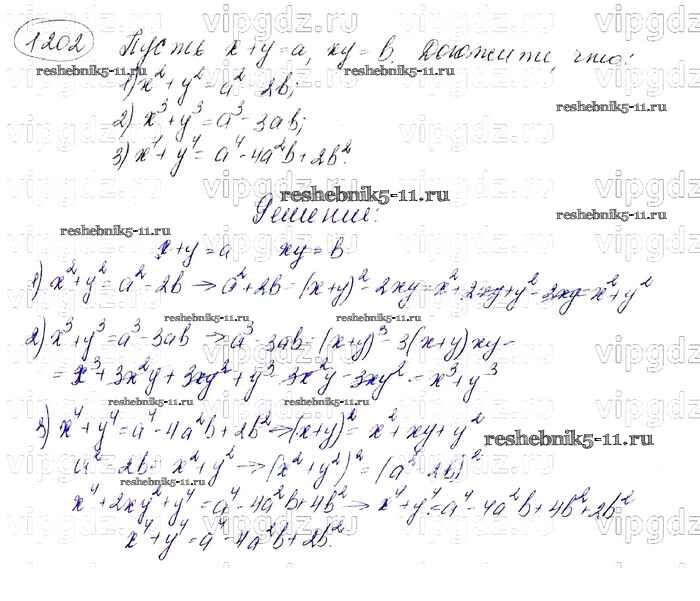 1202 Пусть x+y=a, xy=b. Докажите, что:
1) x²+y²=a²-2b;
2) x³+y³=a³-3ab;
3) x⁴+y⁴=a⁴-4a²b+2b².
Решение:
x+y=a xy=b
1) x²+y²=a²-2b → a²+2b=(x+y)²-2xy=x²+2xy+y²-2xy=x²+y²
2) x³+y³=a³-3ab → a³-3ab=(x+y)³-3(x+y)xy-
=x³+3x²y+3xy²+y³-3x²y-3xy²-x³+y³
3) x⁴+y⁴=a⁴-4a²b+2b² → (x+y)²=x²+xy+y²
a²-2b=x²+y² → (x²+y²)²=(a²-2b)²
x⁴+2xy²+y⁴=a⁴-4a²b+4b² → x⁴+y⁴=a⁴-4a²b+4b²+2b²
x⁴+y⁴=a⁴-4a²b+2b².
vipgdz.com
reshebnik5-11.ru